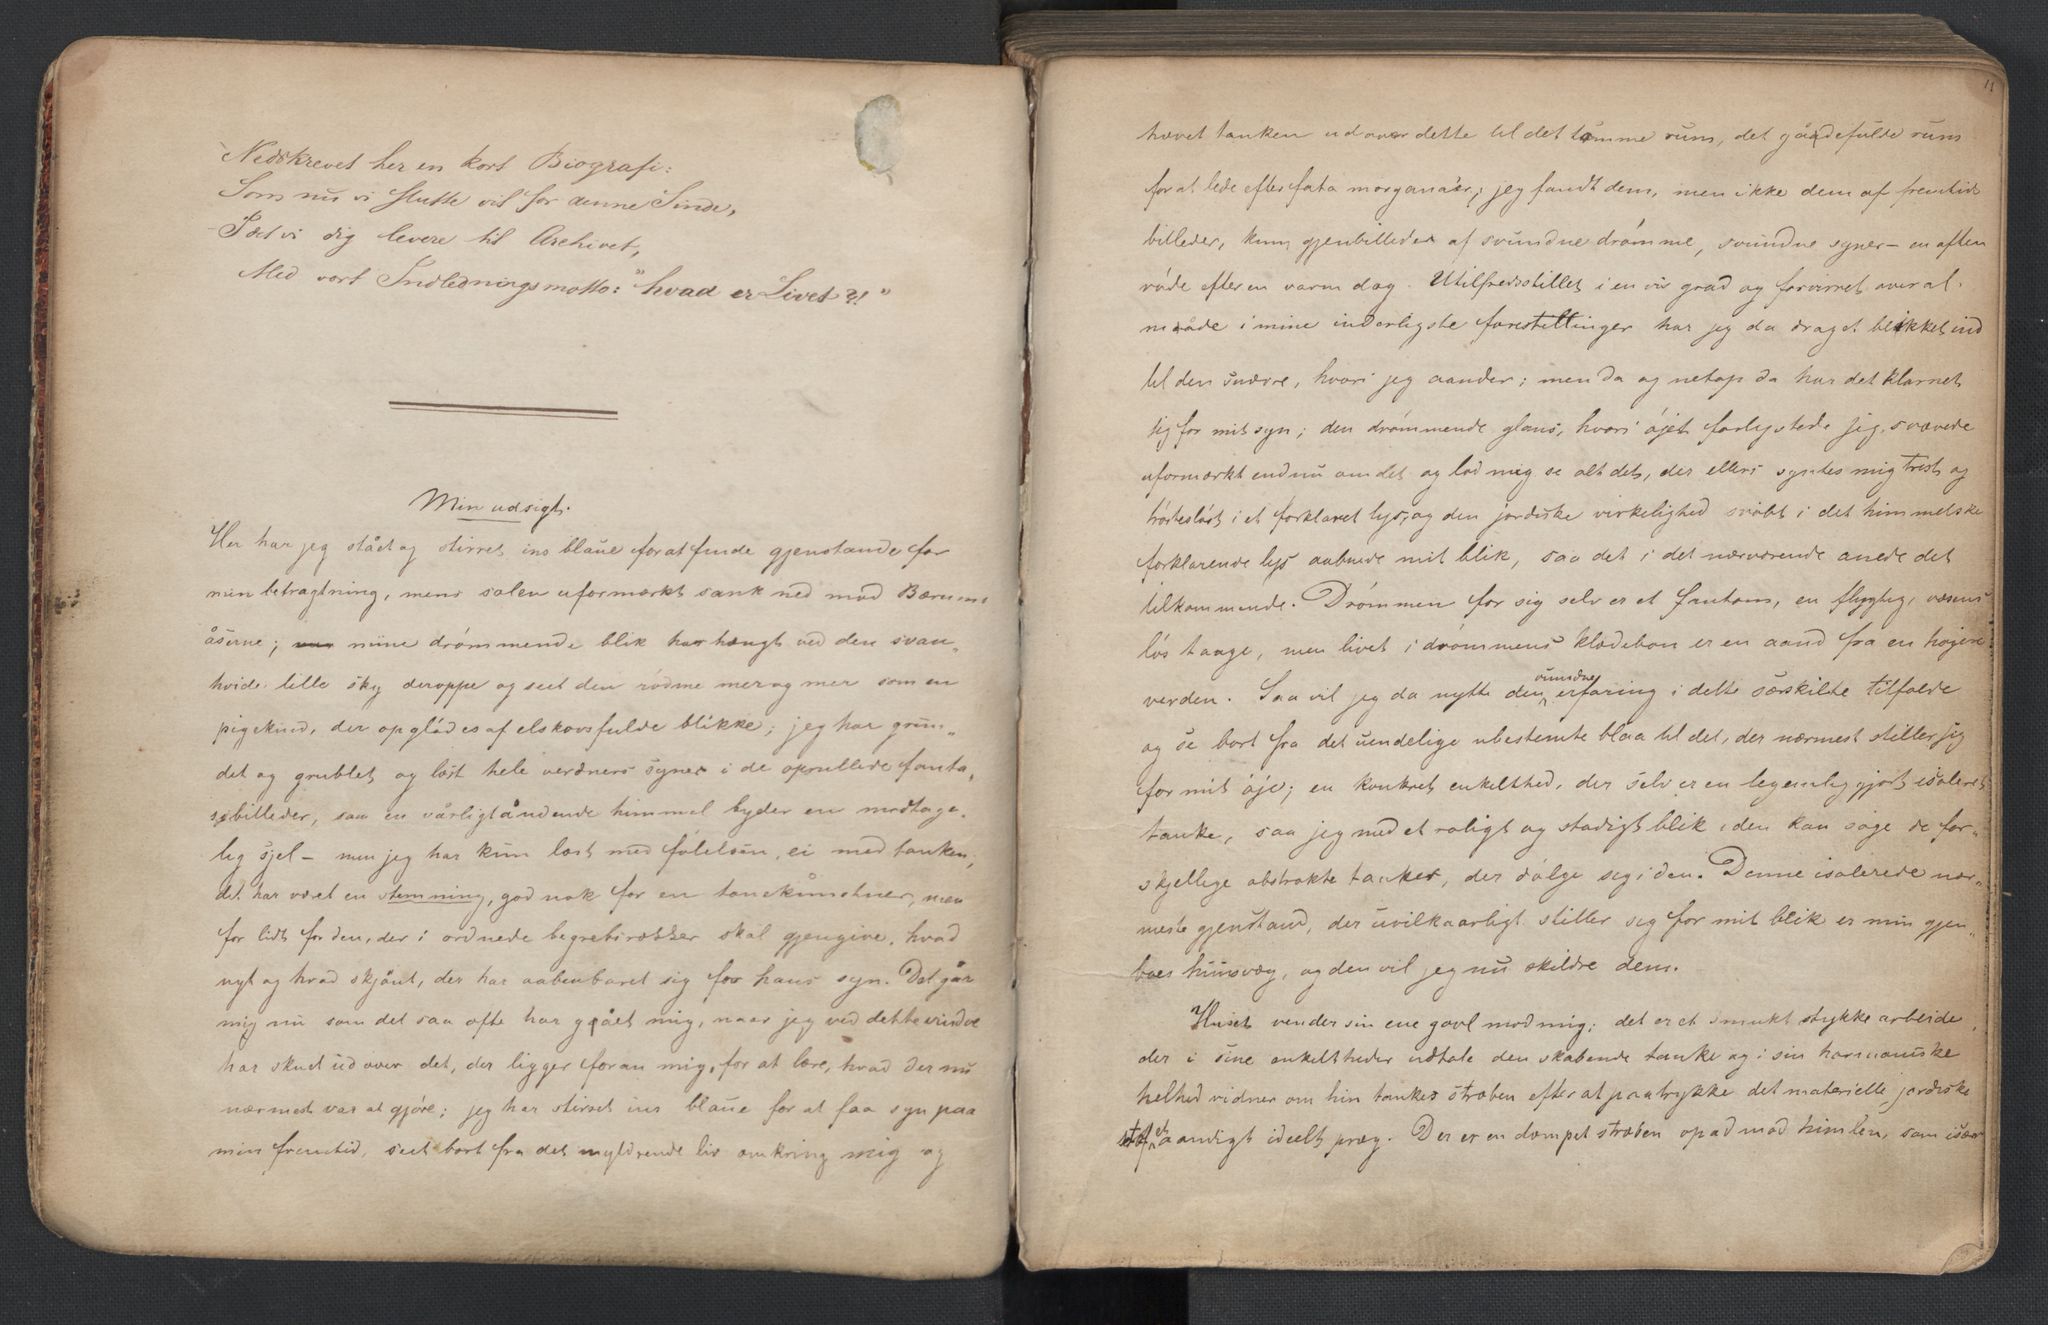 Nedskrevet her en kort Biografi:
Som nu vi slutte vil for denne Sinde,
Idet vi dig levere til Archivet,
Med vort Indledningsmotto: "hvad er Livet?!"
Min udsigt.
Her har jeg stået og stirret ins blaue for at finde gjenstande for
min betragtning, mens solen uformærkt sank ned mod Bærums
åserne; mine drømmende blik har hængt ved den svan„
hvide lille sky deroppe og seet den rødme mer og mer som en
pigekind, der opglødes af elskovsfulde blikke; jeg har grun„
det og grublet og læst hele verdners syner i de oprullede fanta„
sibilleder, saa en vårligtåndende himmel byder en modtage„
lig sjel – men jeg har kun læst med følelsen, ei med tanken;
det har været en stemning, god nok for en tonekunstner, men
for lidt for den, der i ordnede begrebsrækker skal gjengive, hvad
nyt og hvad skjønt, der har aabenbaret sig for hans syn. Det går
mig nu som det saa ofte har gået mig, naar jeg ved dette vindve
har skuet ud over det, der ligger foran mig, for at lære, hvad der nu
nærmest var at gjøre; jeg har stirret ins blaue for at faa syn paa
min fremtid, seet bort fra det myldrende liv omkring mig og
11
hævet tanken ud over dette til det tomme rum, det gaadefulde rum
for at lede efter fata morganaer; jeg fandt dem, men ikke dem af fremtids
billeder, kun gjenbilleder af svundne drømme, svundne syner – en aften
røde efter en varm dag. Utilfredsstillet i en vis grad og forvirret over al„
området i mine inderligste forestillinger har jeg da draget blikket ind
til den snævre, hvori jeg aander; men da og netop da har det klarnet
sig for mit syn; den drømmende glans, hvori øjet forlystede sig, svævede
uformærkt endnu om det og lod mig se alt det, der ellers syntes mig trist og
trøstesløst i et forklaret lys, og den jordiske virkelighed svøbt i det himmelske
forklarende lys aabnede mit blik, saa det i det nærværende anede det
tilkommende. Drømmen for sig selv er et fantom, en flygtig, væsens
løs taage, men livet i drømmens klædebon er en aand fra en højere
verden. Saa vil jeg da nytte den vundne erfaring i dette særskilte tilfælde
og se bort fra det uendelige ubestemte blaa til det, der nærmest stiller sig
for mit øje; en konkret enkelthed, der selv er en legemliggjort isoleret
tanke, saa jeg med et roligt og stadigt blik i den kan søge de for„
skjellige abstrakte tanker, der dølge sig i den. Denne isolerede nær„
meste gjenstand, der uvilkaarligt stiller sig for mit blik er min gjen„
boes husvæg, og den vil jeg nu skildre dem.
Huset vender sin ene gavl mod mig; det er et smukt stykke arbeide,
der i sine enkeltheder udtale den skabende tanke og i sin harmoniske
helhed vidner om hin tankes stræben efter at paatrykke det materielle jordiske
stof et aandigt ideelt præg. Der er en dæmpet stræben opad mod himlen, som især